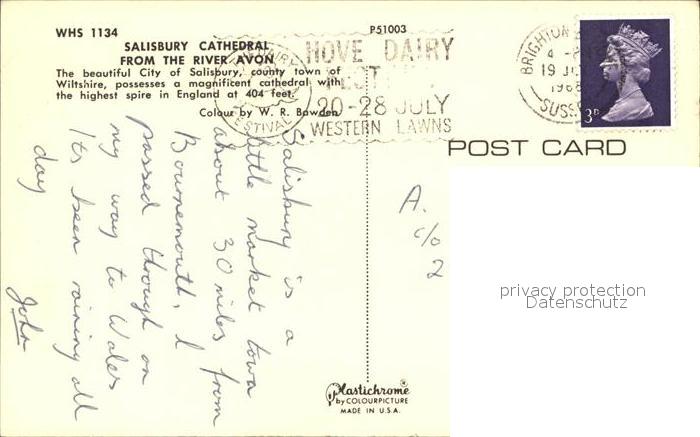 WHS 1134
SALISBURY CATHEDRAL
FROM THE RIVER AVON
The beautiful City of Salisbury, county town of
Wiltshire, possesses a magnificent cathedral with
the highest spire in England at 404 feet.
Colour by W. R. Bawden
P51003
HOVE DAIRY
FESTIVAL
20-28 JULY
WESTERN LAWNS
DAIRY
FESTIVAL
BRIGHTON
19 JU
1968
SUSSEX
3D
POST CARD
Salisbury is a
little market town
about 30 miles from
Bournemouth, I
passed through on
my way to Wales
Its been raining all
day
John
A.
c/o
2
privacy protection
Datenschutz
Plastichrome®
by COLOURPICTURE
MADE IN U.S.A.